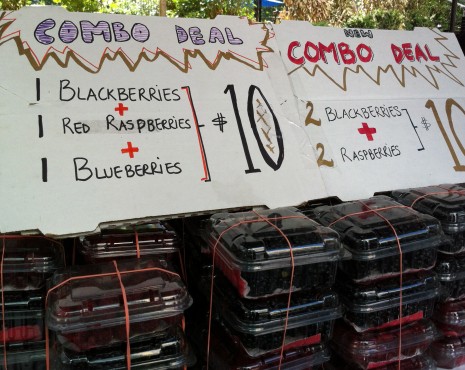 COMBO DEAL
1 BLACKBERRIES
+
1 RED RASPBERRIES
+
1 BLUEBERRIES
$10
NEW
COMBO DEAL
2 BLACKBERRIES
+
2 RASPBERRIES
$10